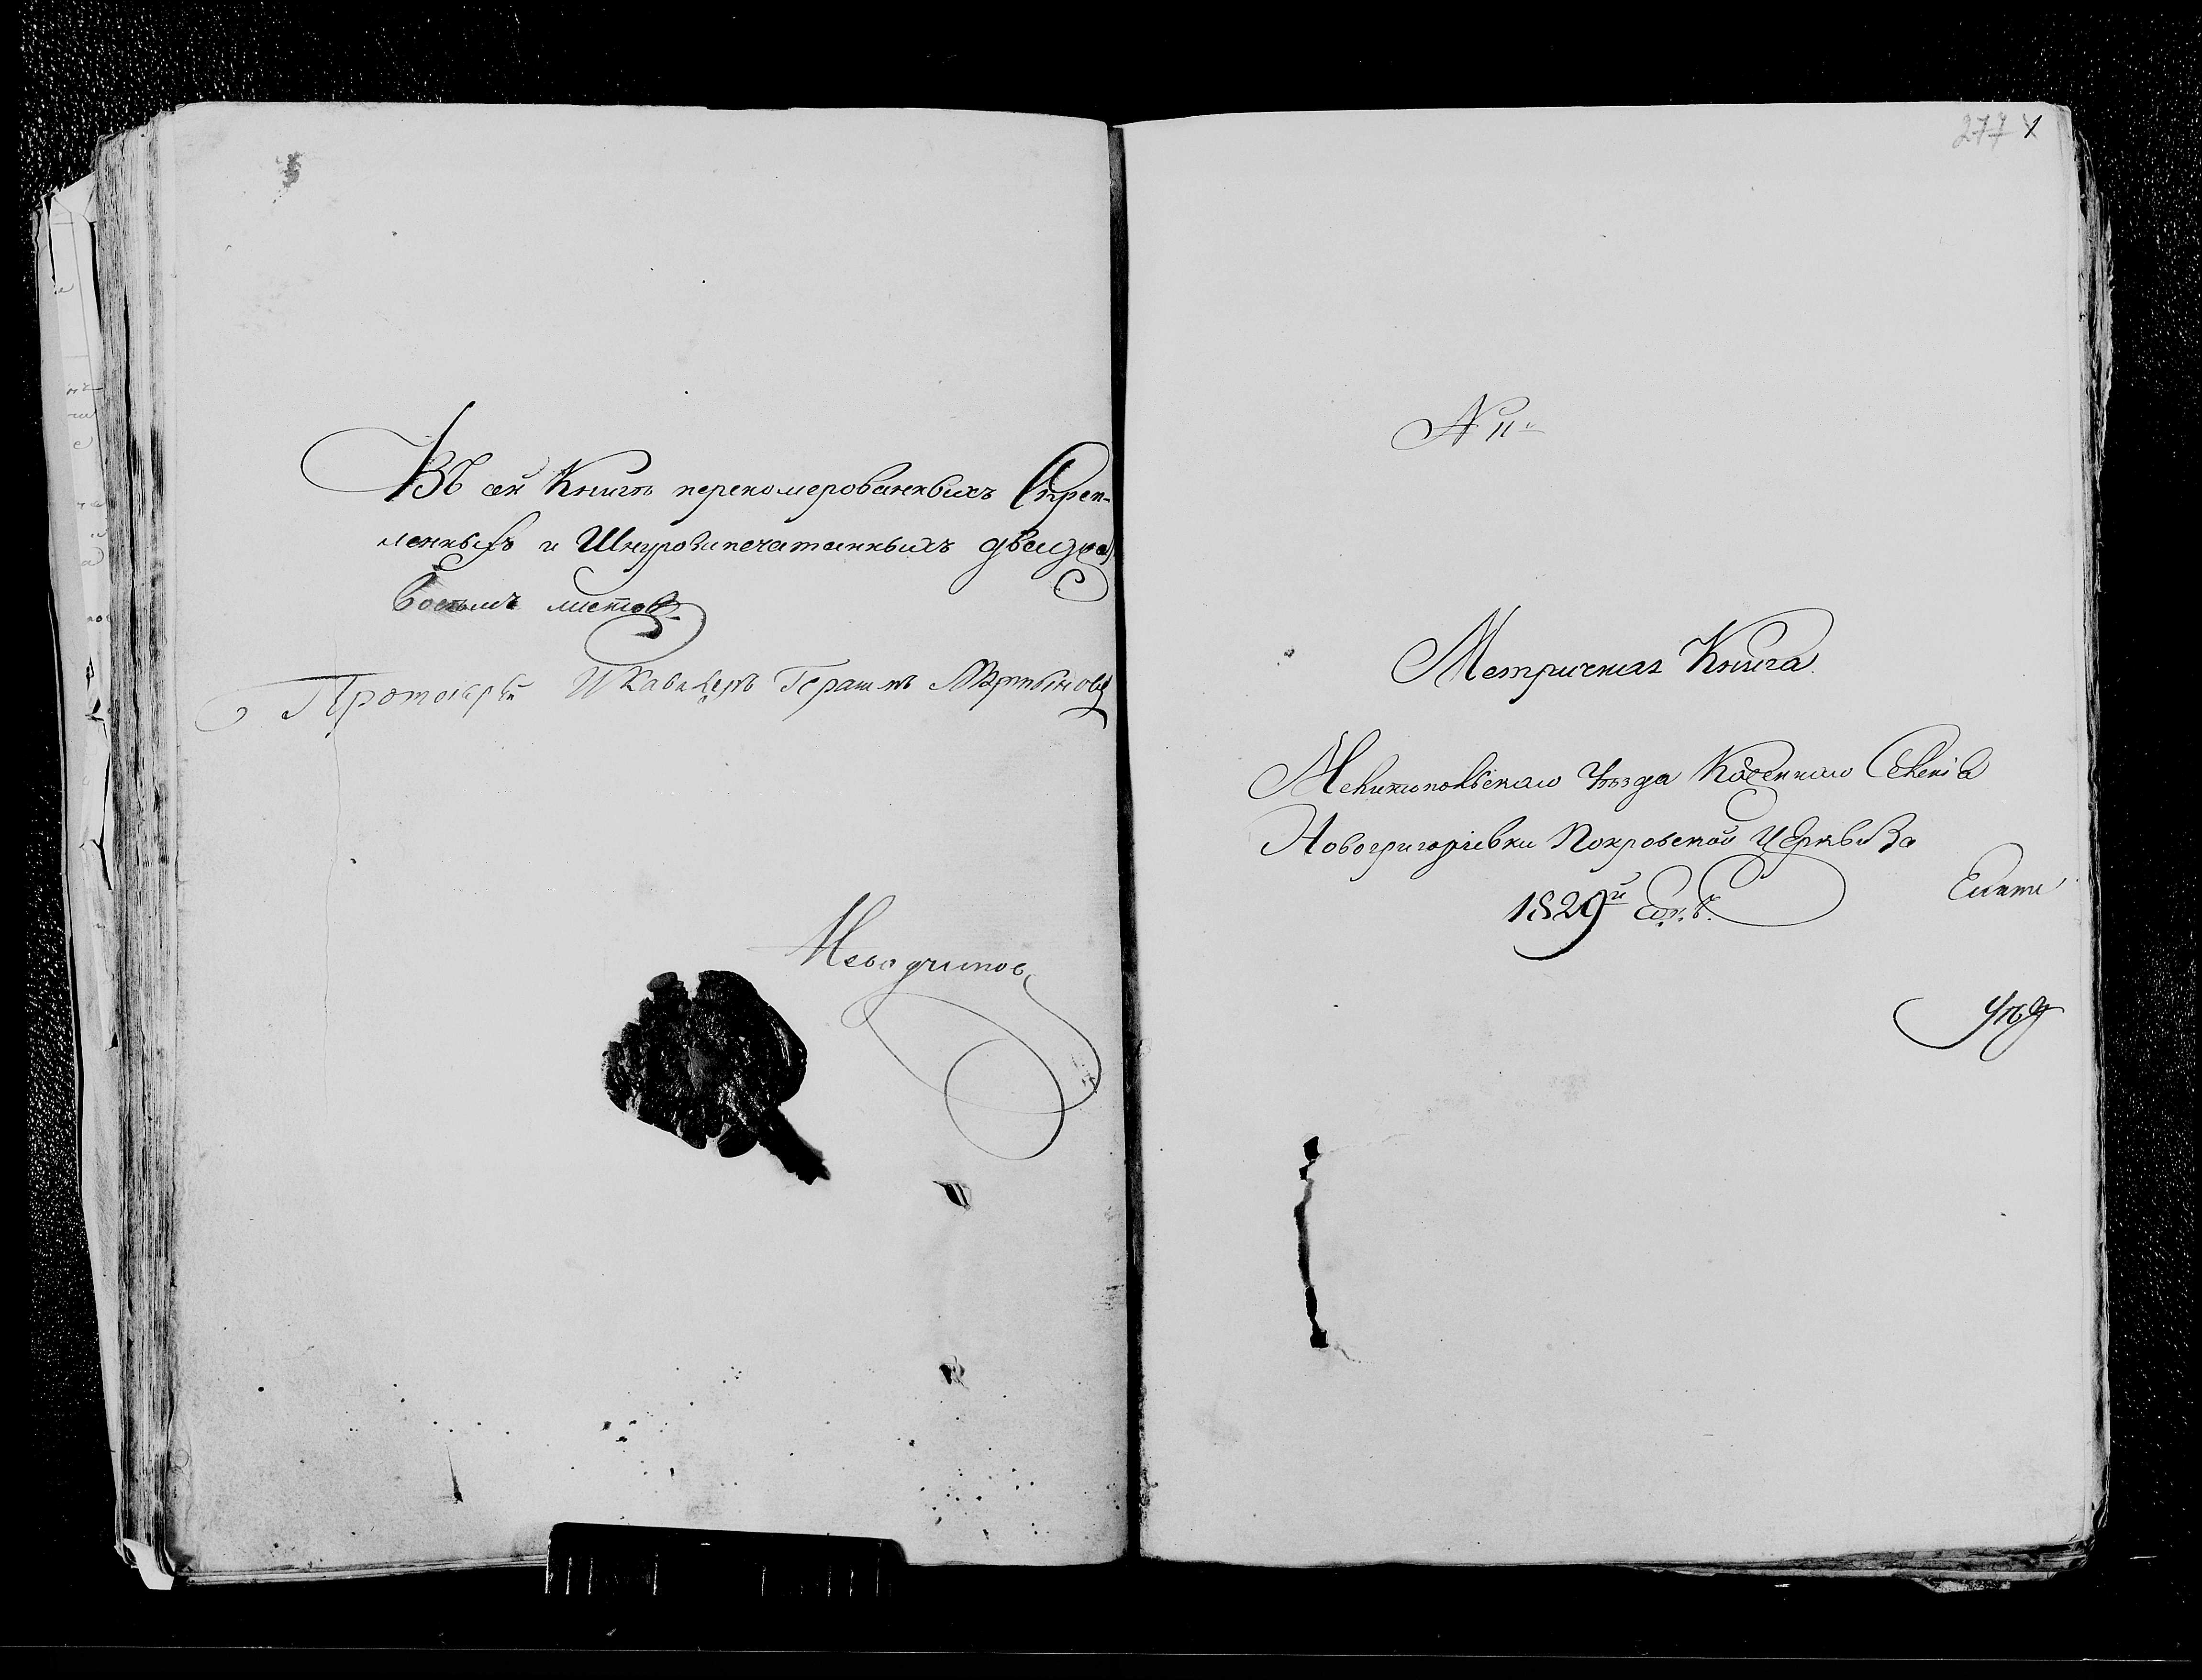 Въ сей Книгѣ переномерованныхъ Скреп-
ленныхъ и Шнурозапечатанныхъ двадца
восемь листовъ
Протоіерей И Кавалеръ Герасимъ Мартыновъ
277 1
N 11
Метричная Книга
Мелитопольскаго Уѣзда Казеннаго Селенія
Новогригоріевки Покровской Церкви За
1829й Годъ.